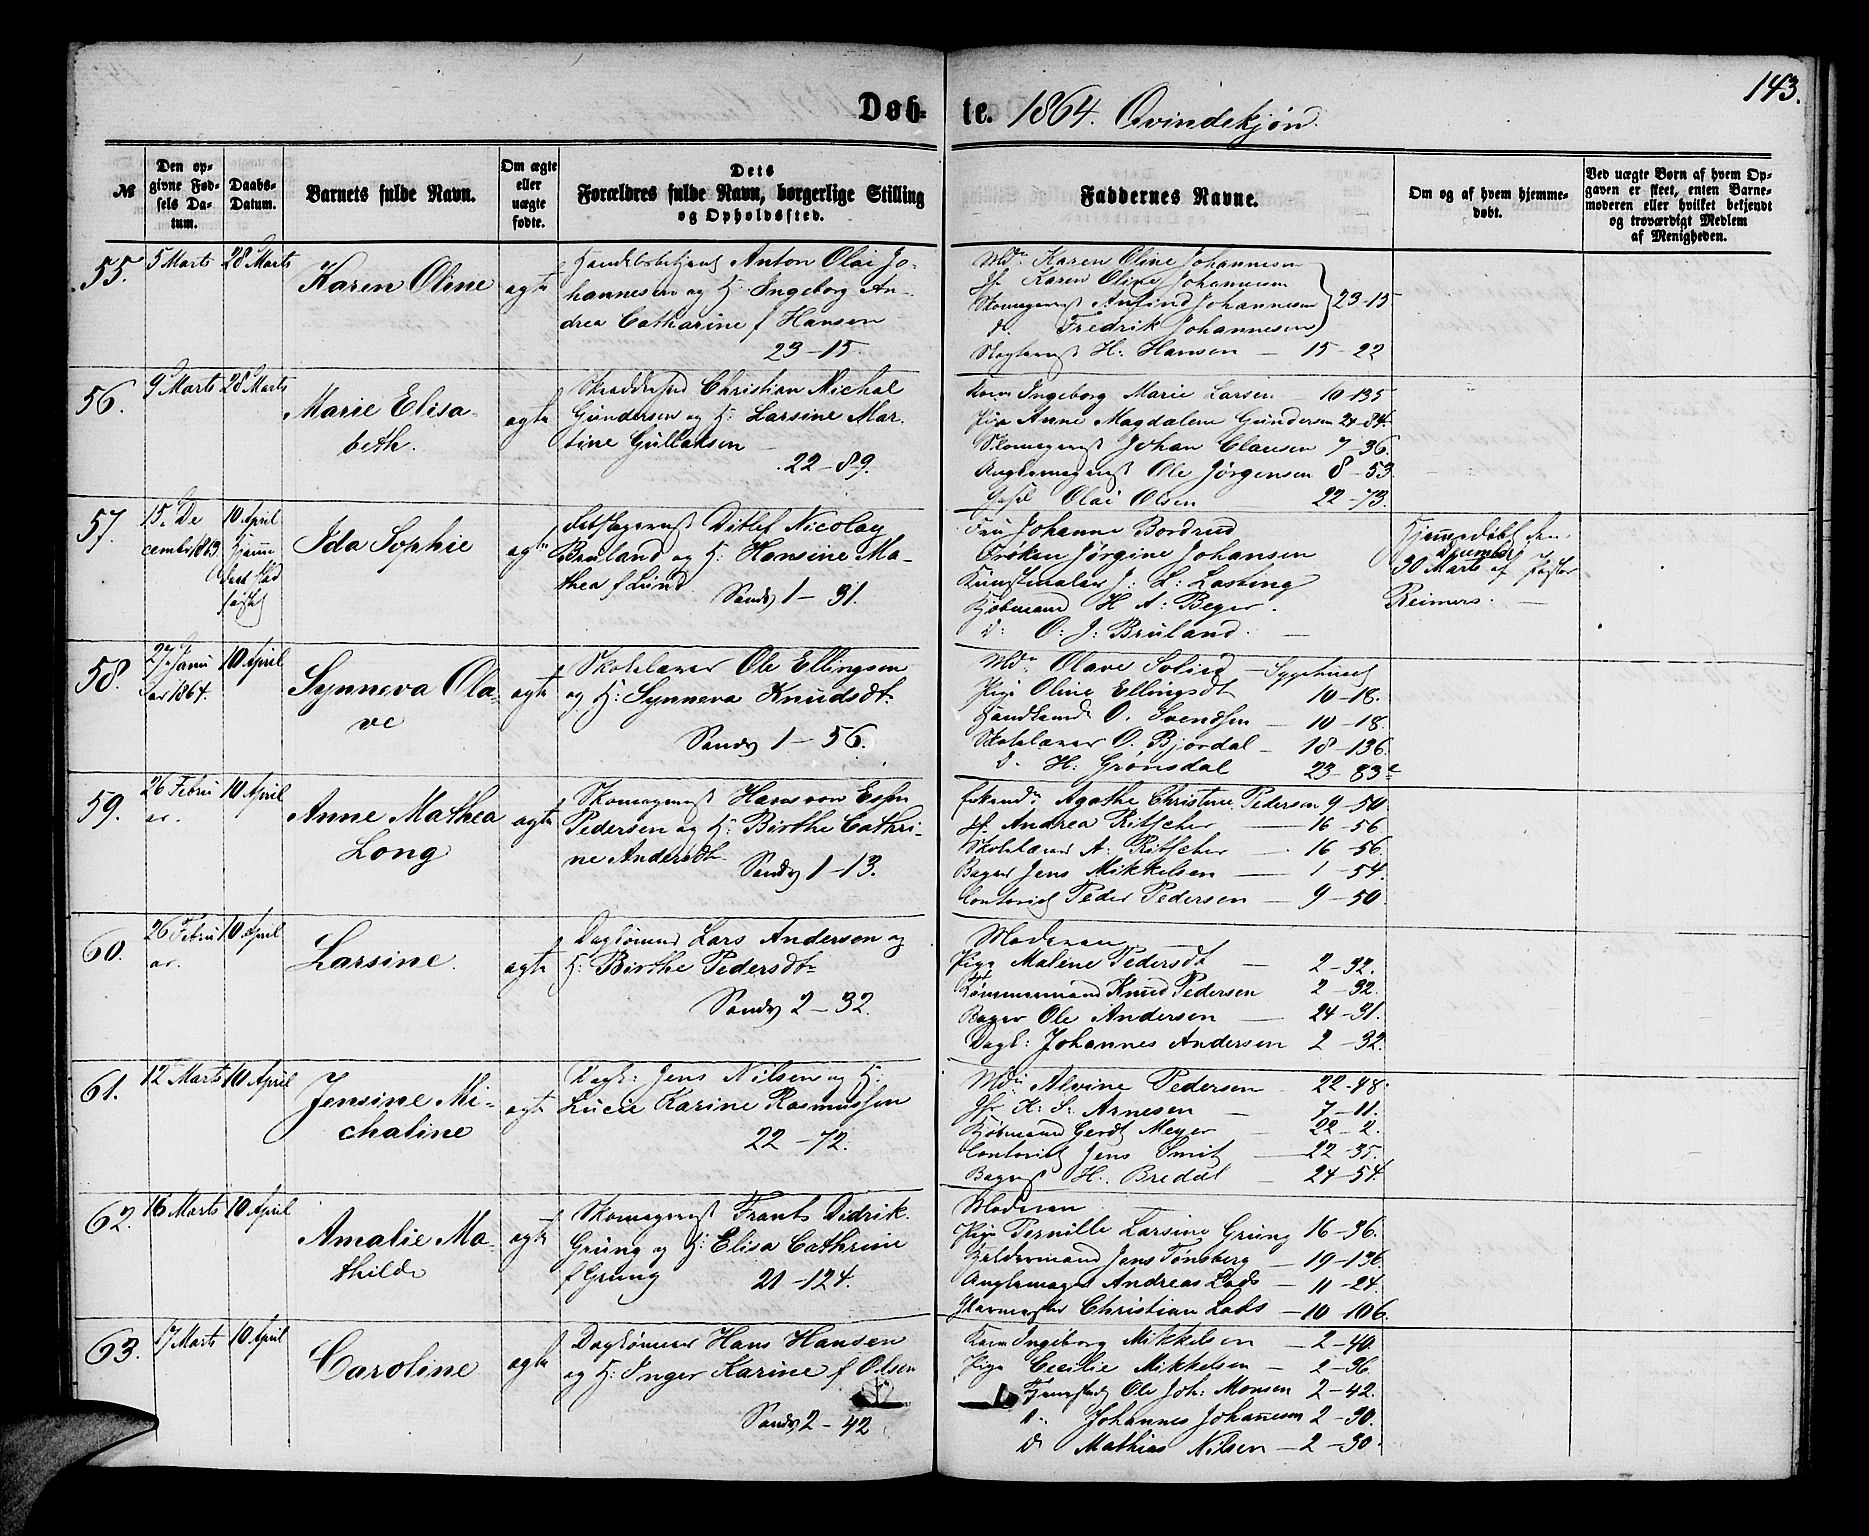 143.
Døb- te. 1864. Qvindekjøn.
№
Den opgivne Fødsels Datum.
Daabs-Datum.
Barnets fulde Navn.
Om ægte eller uægte fødte.
Dets
Forældres fulde Navn, borgerlige Stilling
og Opholdssted.
Faddernes Navne.
Om og af hvem hjemmedøbt.
Ved uægte Børn af hvem Opgaven er skeet, enten Barnemoderen eller hvilket bekjendt og troværdigt Medlem af Menigheden.
55. 5 Marts 28 Marts Karen Oline ægte
Anton Olai Jo-
hannesen og H: Ingeborg An-
drea Catharine f Hansen
23-15.
Md: Karen Oline Johannesen
Jfr Karen Oline Johannesen
Skomagersv Anfind Johannesen 23-15
do Fredrik Johannesen
H: Hansen 15-22
56. 9 Marts 28 Marts Marie Elisa-
beth. ægte
Christian Michal
Gundersen og H: Larsine Mar-
tine Gullaksen
22-89.
Kone Ingeborg Marie Larsen 10-135
Pige Anne Magdalene Gundersen 21-84
Skomagersv Johan Clausen 7-36.
Ole Jørgensen 8-53
Olai Olsen 22-73.
57. 15 De
cembr 1863 10 April
Ida Sophie ægte
Ditlef Nicolay
Bruland og H: Hansine Ma-
thea f Lund.
Sandv 1-31.
Fru Johanne Bordrud
Frøken Jørgine Johansen
Kunstmaler J: L: Losting
Kjøbmand H A: Beyer.
d: O: J: Bruland.
Hjemmedøbt den
december
30 Marts af Pastor
Reimers.
58. 27 Janu
ar 1864. 10 April Synneva Ola-
ve ægte
Skolelærer Ole Ellingsen
og H: Synneva Knudsdt:
Sandv 1-56.
Md: Olave Solied Sygehuset
Pige Oline Ellingsdt 10-18.
O. Svendsen 10-18.
Skolelærer O. Bjordal 18-136.
d. H: Grønsdal 23-83
59. 26 Febru
ar. 10 April Anne Mathea
Long ægte
Skomagersv Hans von Essen
Pedersen og H: Birthe Cathri-
ne Andersdt.
Sandv 1-13.
Agathe Christine Pedersen 9-50
Jf. Andrea Ritscher 16-56
Skolelærer A: Ritscher 16-56.
Bager Jens Mikkelsen 1-54.
Contorist Peder Pedersen 9-50.
60. 26 Febru
ar. 10 April Larsine. ægte
Dagkønner Lars Andersen og
H: Birthe Pedersdt:
Sandv 2-32.
Moderen
Pige Malene Pedersdt 2-32.
Tømmermand Knud Pedersen 2-32.
Bager Ole Andersen 24-31.
Dagl: Johannes Andersen 2-32.
61. 12 Marts 10 April Jensine Mi-
chaline ægte
Dagl: Jens Nilsen og H:
Lucie Karine Rasmussen
22-72.
Md: Alvine Pedersen 22-48.
Jfr K: S: Arnesen 7-11.
Kjøbmand Gerdt Meyer 22-2.
Contorist Jens Smit 22-35.
H. Bredal 24-54.
62. 16 Marts 10 April Amalie Ma-
thilde ægte
Skomagersv Frants Didrik
Grung og H: Elisa Cathrine
f Grung 21-124.
Moderen
Pige Pernille Larsine Grung 16-36.
Jens Tønsberg 19-136
Andreas Lads 11-24.
Christian Lads 10-106.
63. 17 Marts 10 April Caroline ægte
Hans Hansen
og H: Inger Karine f Olsen
Sandv 2-42
Kone Ingeborg Mikkelsen 2-40.
Pige Cecilie Mikkelsen 2-36
Ole Joh: Monsen 2-42.
d: Johannes Johannesen 2-30.
d: Mathias Nilsen 2-30.